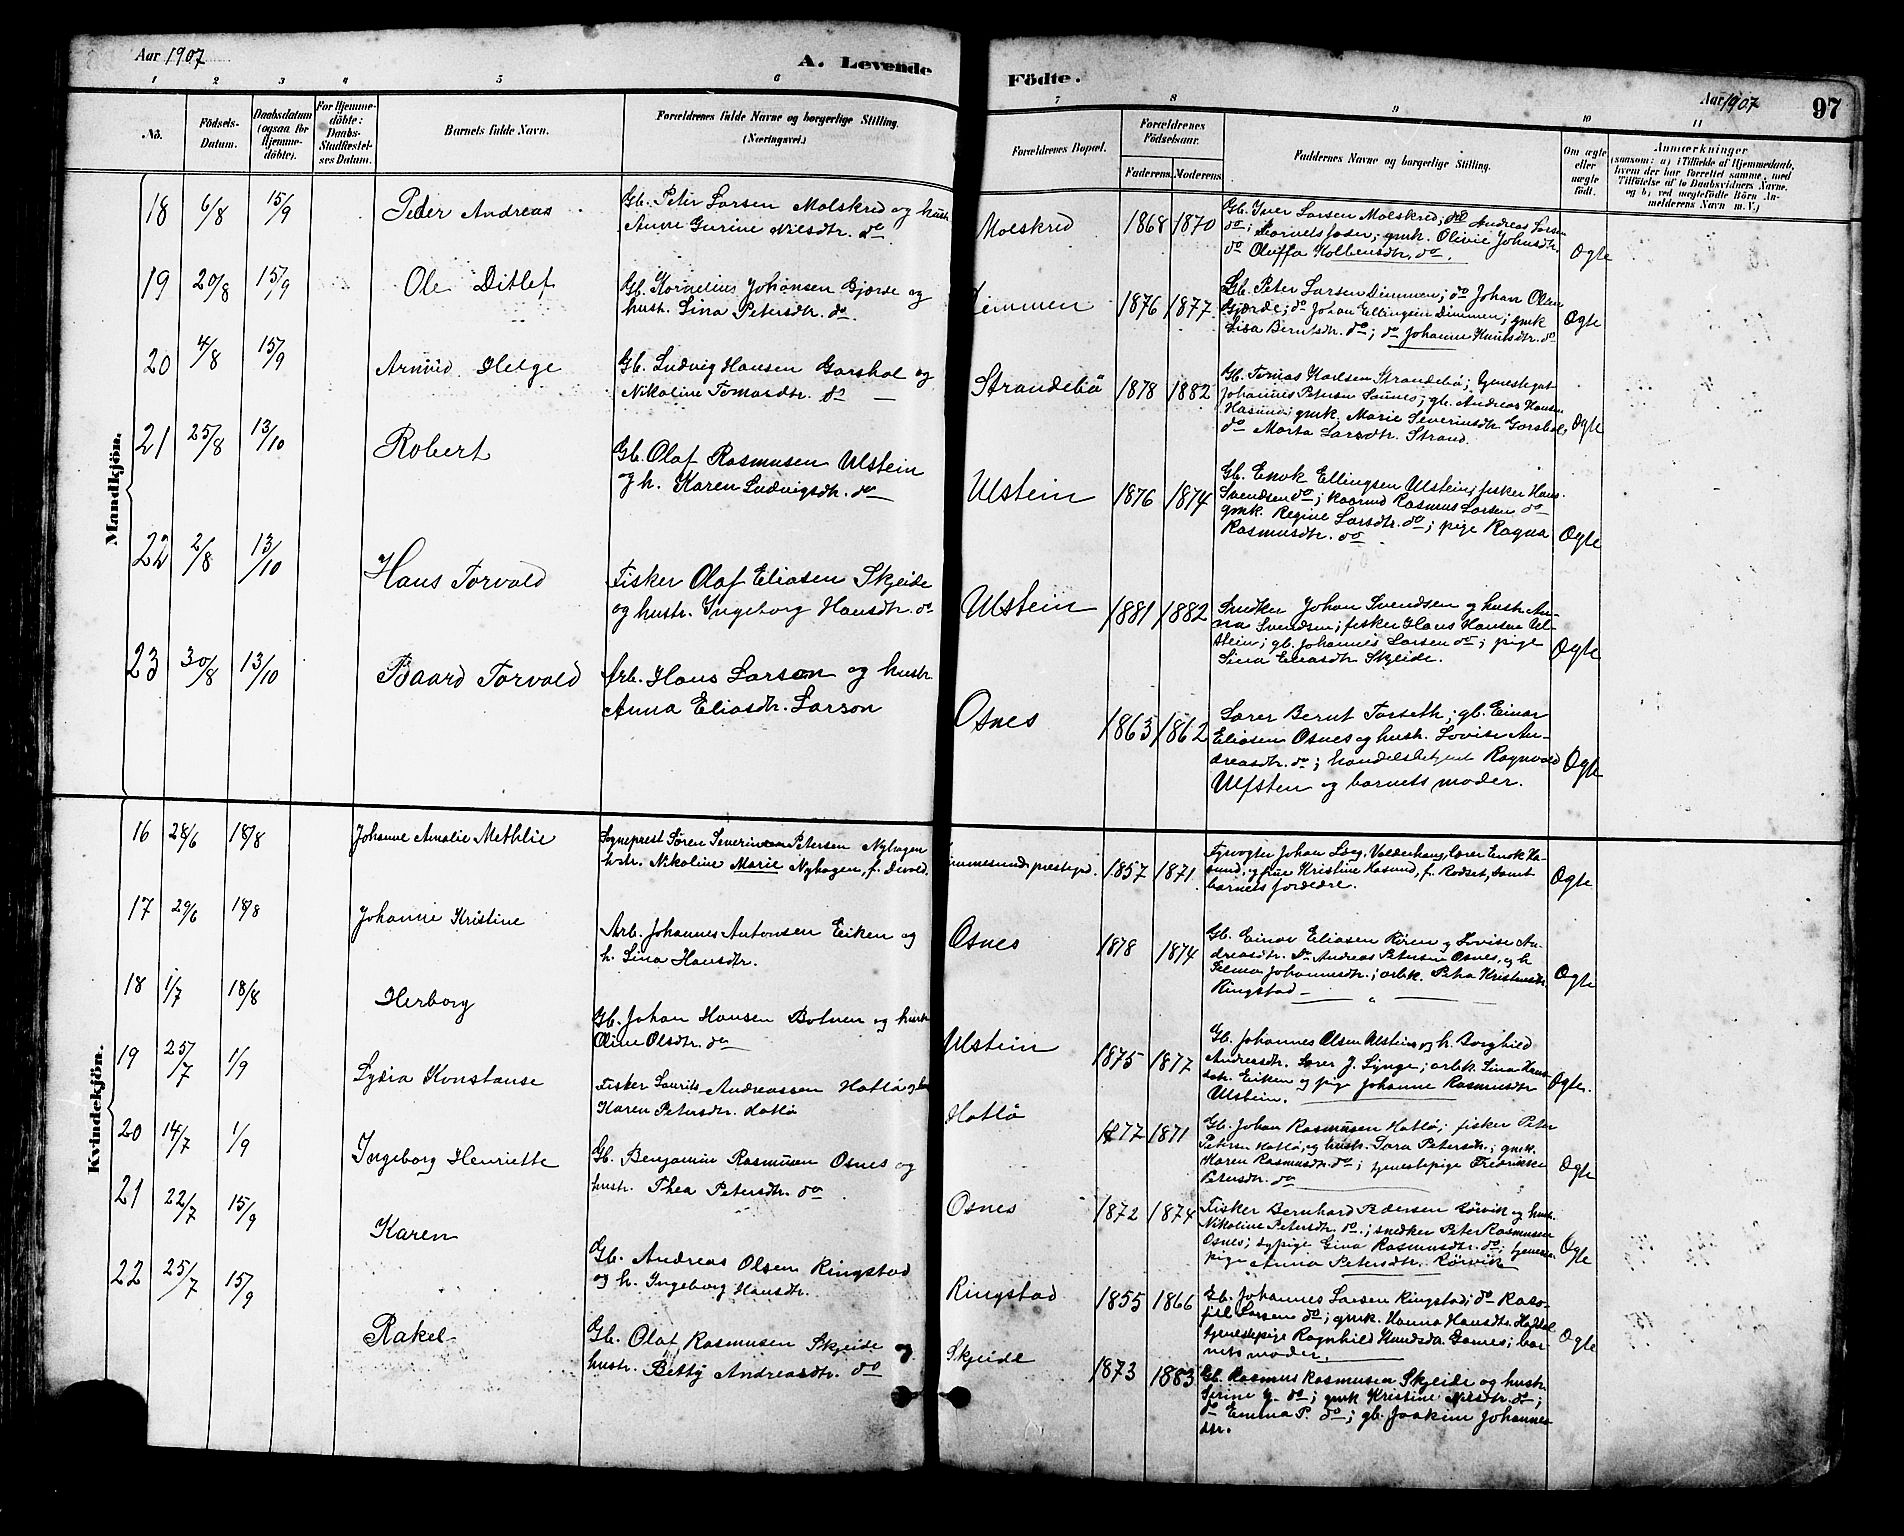 Aar 1907
A. Levende
Födte.
Aar 1907
97
1 2 3 4 5 6 7 8 9 10 11
No.
Födsels-Datum.
Daabsdatum (ogsaa for Hjemme-döbte).
For Hjemme-döbte: Daabs-Stadfæstelses Datum.
Barnets fulde Navn.
Forældrenes fulde Navne og borgerlige Stilling. (Næringsvei.)
Forældrenes Bopæl.
Forældrenes Födselsaar.
Faderens. Moderens.
Faddernes Navne og borgerlige Stilling.
Om ægte eller uægte födt.
Anmærkninger
(saasom: a) i Tilfælde af Hjemmedaab, hvem der har forrettet samme, med Tilföielse af to Daabsvidners Navne, og b) ved uægtefödte Börn Anmelderens Navn m. V.)
Mandkjön.
18 6/8 15/9 Peder Andreas
Gb. Peter Larsen Molskred og hustr.
Anne Gurine Nilsdtr. do
Molskred 1868 1870
Gb. Iver Larsen Molskred; do Andreas Larsen
do; barnets fader; gmk. Olivie Johnsdtr.
do Oluffa Kolbensdtr. do.
Ægte
19 20/8 15/9 Ole Ditlef
Gb. Kornelius Johansen Gjerde og
hustr. Lina Petersdtr. do
Dimmen 1876 1877
Gb. Peter Larsen Dimmen; do Johan Olsen
Gjærde; do Johan Ellingsen Dimmen; gmk
Lisa Berntsdtr. do; do Johanne Knutsdtr. do
Ægte
20 4/8 15/9 Arnund Helge
Gb. Ludvig Hansen Garshol og
Nikoline Tomasdtr. do
Strandebö 1878 1882
Gb. Tomas Karlsen Strandebö; tjenestegut
Johannes Petersen Saunes; gb. Andreas Hansen
Hasund; gmk. Marie Severinsdtr. Garshol,
do Marta Larsdtr. Strand.
Ægte
21 25/8 13/10 Robert
Gb. Olaf Rasmusen Ulstein
og h. Karen Ludvigsdtr. do
Ulstein 1876 1874
Gb. Enok Ellingsen Ulstein; fisker Hans
Svendsen do; kaarmd Rasmus Larsen do
gmk. Regine Larsdtr. do; pige Ragna
Rasmusdtr. do
Ægte
22 2/8 13/10 Hans Torvald
Fisker Olaf Eliasen Skjeide
og hustr. Ingeborg Hansdtr. do
Ulstein 1881 1882
Snedker Johan Svendsen og hustr. An-
na Svendsen; fisker Hans Hansen Ul-
stein; gb. Johannes Larsen do; pige
Lina Eliasdtr. Skjeide.
Ægte
23 30/8 13/10 Baard Torvald
Arb. Hans Larson og hustr.
Anna Eliasdtr. Larson
Osnes 1863 1862
Lærer Bernt Torseth; gb. Einar
Eliasen Osnes og hustr. Lovise An-
dreasdtr. do; handelsbetjent Ragnvald
Ulfsten og barnets moder.
Ægte
Kvindekjön.
16 28/6 18/8 Johanne Amalie Methlie
Sogneprest Sören Severin Petersen Nyhagen
hstr. Nikoline Marie Nyhagen, f. Devold.
1857 1871
Fyrvogter Johan Lseg. Valderhaug, lærer Enok Ha-
sund, og frue Kristine Hasund, f. Rodset, samt
barnets forældre.
Ægte
17 29/6 18/8 Johanne Kristine
Arb. Johannes Antonsen Eiken og
h. Lina Hansdtr.
Osnes 1878 1874
Gb. Einar Eliasen Rören og Lovise An-
dreasdtr. Do Andreas Petersen Osnes, og h
Johannesdtr.; arbk. Petra Kristensdtr.
Ringstad
Ægte
18 1/7 18/8 Herborg
Gb. Johan Hansen Botnen og hustr
Oline Olsdtr. do
Ulstein 1875 1877
Gb. Johannes Olsen Ulstein og h. Borghild
Andreasdtr. Lærer J. Lynge; arbk. Lina Hans-
dtr. Eiken og pig. Johanne Rasmusdtr
Ulstein.
Ægte.
19 25/7 1/9 Lydia Konstanse
Fisker Laurits Andreassen Hatlö og h
Karen Petersdtr. Hatlö
Hatlö 1877 1871
Gb. Johan Rasmusen Hatlö; fisker Peter
Petersen Hatlö, og hustr. Sara Petersdtr.; gmk.
Karen Rasmusdtr. do; tjenestepige Fredrikke
Petersdtr. do
Ægte
20 14/7 1/9 Ingeborg Henriette
Gb. Benjamin Rasmusen Osnes og
hustr. Thea Petersdtr. do
Osnes 1872 1874
Fisker Bernhard Pedersen Rörvik og hustr.
Nikoline Petersdtr. do; snedker Peter Rasmussen
Osnes; sypige Gina Rasmusdtr. do; tjeneste-
pige Anna Petersdtr. Rörvik
Ægte
21 22/7 15/9 Karen
Gb. Andreas Olsen Ringstad
og h. Ingeborg Hansdtr.
Ringstad 1855 1866
Gb. Johannes Larsen Ringstad; do
Larsen do; gmk. Hanna Hansdtr.
tjenestepige Ragnhild Knudsdtr. ; bar
nets moder.
Ægte
22 25/7 15/9 Rakel
Gb. Olaf Rasmusen Skjeide
hustr. Betty Andreasdtr. do
Skjeide 1873 1883
Gb. Rasmus Rasmusen Skjeide og hustr.
do; gmk Kristine Nilsdtr. do;
do Emma P. do; gb. Joakim Johannes-
dtr.